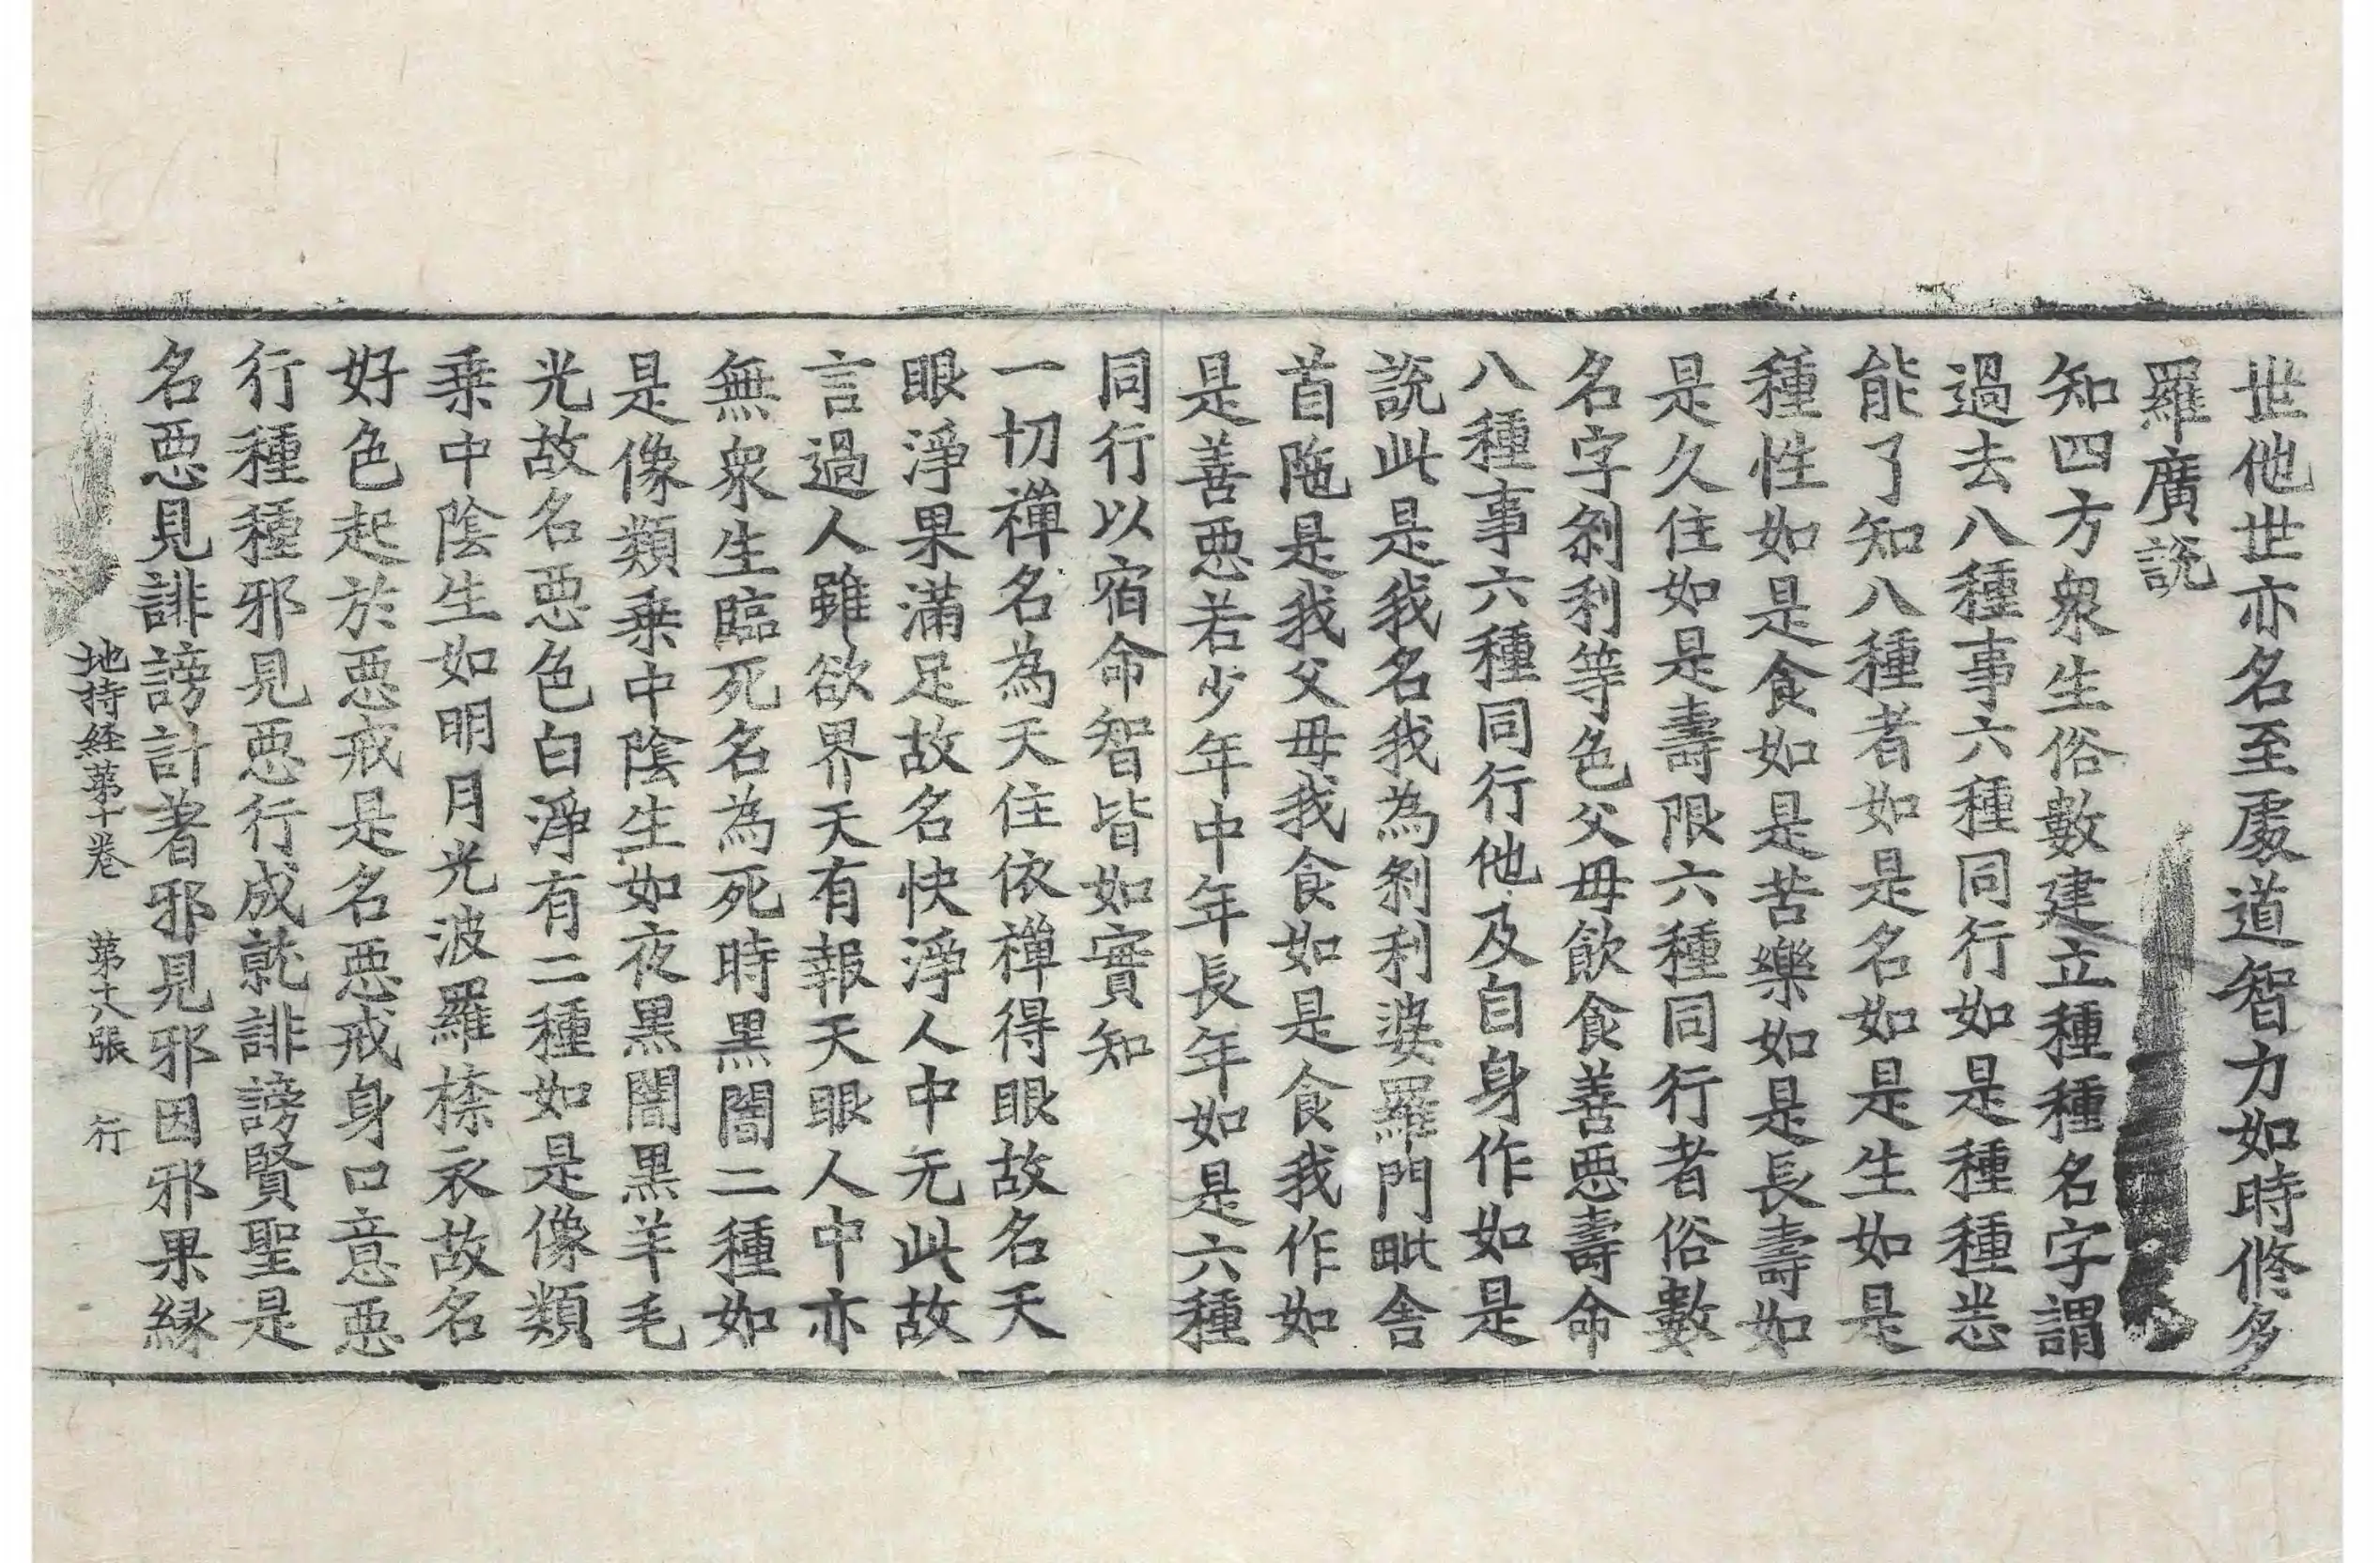 世他世亦名至處道智力如時修多
羅廣説
知四方衆生俗數建立種種名字謂
過去八種事六種同行如是種種悉
能了知八種者如是名如是生如是
種性如是食如是苦樂如是長壽如
是久住如是壽限六種同行者俗數
名字刹利等色父母飲食善惡壽命
八種事六種同行他及自身作如是
説此是我名我為刹利婆羅門毗舍
首陁是我父母我食如是食我作如
是善惡若少年中年長年如是六種
同行以宿命智皆如實知
一切禪名為天住依禪得眼故名天
眼淨果滿足故名快淨人中无此故
言過人雖欲界天有報天眼人中亦
無衆生臨死名為死時黑闇二種如
是像類乗中陰生如夜黑闇黑羊毛
光故名惡色白淨有二種如是像類
乗中陰生如明月光波羅㮈衣故名
好色起於惡戒是名惡戒身口意惡
行種種邪見惡行成就誹謗賢聖是
名惡見誹謗計著邪見邪因邪果縁
地持経苐十卷 苐十八張 行